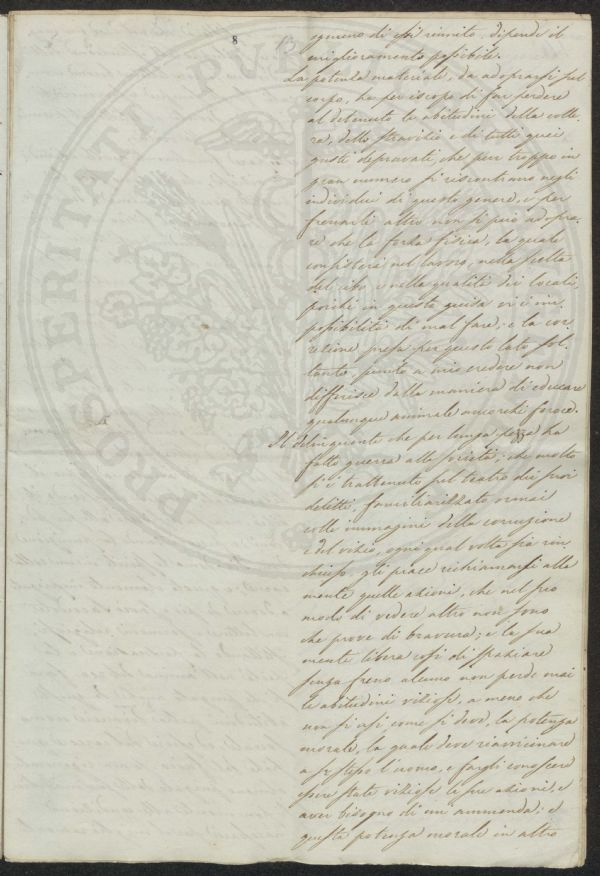 8
13
ognuno di essi riunito, dipende il
miglioramento possibile.
La potenza materiale, da adoprarsi pel
corpo, ha per iscopo di far perdere
al detenuto le abitudini della colle-
ra, dello stravizio e di tutti quei
gusti depravati, che pur troppo in
gran numero si riscontrano negli
individui di questo genere, e per
frenarli altro non si può adopra-
re che la forza fisica, la quale
consisterà nel lavoro, nella scelta
del cibo e nella qualità dei locali
poiché in questa guisa vi è im-
possibilità di mal fare; e la cor-
rezione presa per questo lato sol-
tanto, punto a mio credere non
differisce dalla maniera di educare
qualunque animale ancorché feroce.
Il delinquente che per lunga pezza ha
fatto guerra alla società; che molto
si è trattenuto sul teatro dei suoi
delitti, familiarizzato ormai
colle immagini della corruzione
e del vizio, ogni qual volta sia rin-
chiuso, gli piace richiamarsi alla
mente quelle azioni, che nel suo
modo di vedere altro non sono
che prove di bravura; e la sua
mente libera così di spaziare
senza freno alcuno non perde mai
le abitudini viziose, a meno che
non si usi come si deve, la potenza
morale, la quale deve riavvicinare
a se stesso l'uomo, e fargli conoscere
essere state viziose le sue azioni, e
aver bisogno di un ammenda; e
questa potenza morale in altro
PROSPERITATI PUBL